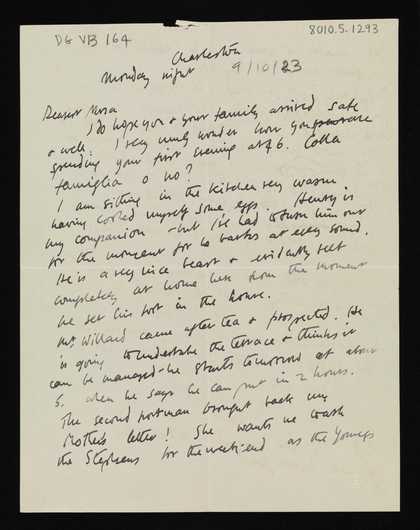 DG VB 164
8010.5.1293
Charleston
Monday night 9/10/23
Dearest Nessa
I do hope you & your family arrived safe
& well. I very much wonder how you are
spending your first evening at 46. Colla
famiglia o no?
I am sitting in the kitchen very warm
having cooked myself some eggs. Henry is
my companion - but I've had to turn him out
for the moment for he barks at every sound.
He is a very nice beast & evidently felt
completely at home here from the moment
he set his foot in the house.
Mr Willard came after tea & prospected. He
is going to undertake the terrace & thinks it
can be managed - he starts tomorrow at about
5. when he says he can put in 2 hours.
The second postman brought back my
Mother's letter! She wants us to ask
the Stephens for the weekend as the Youngs